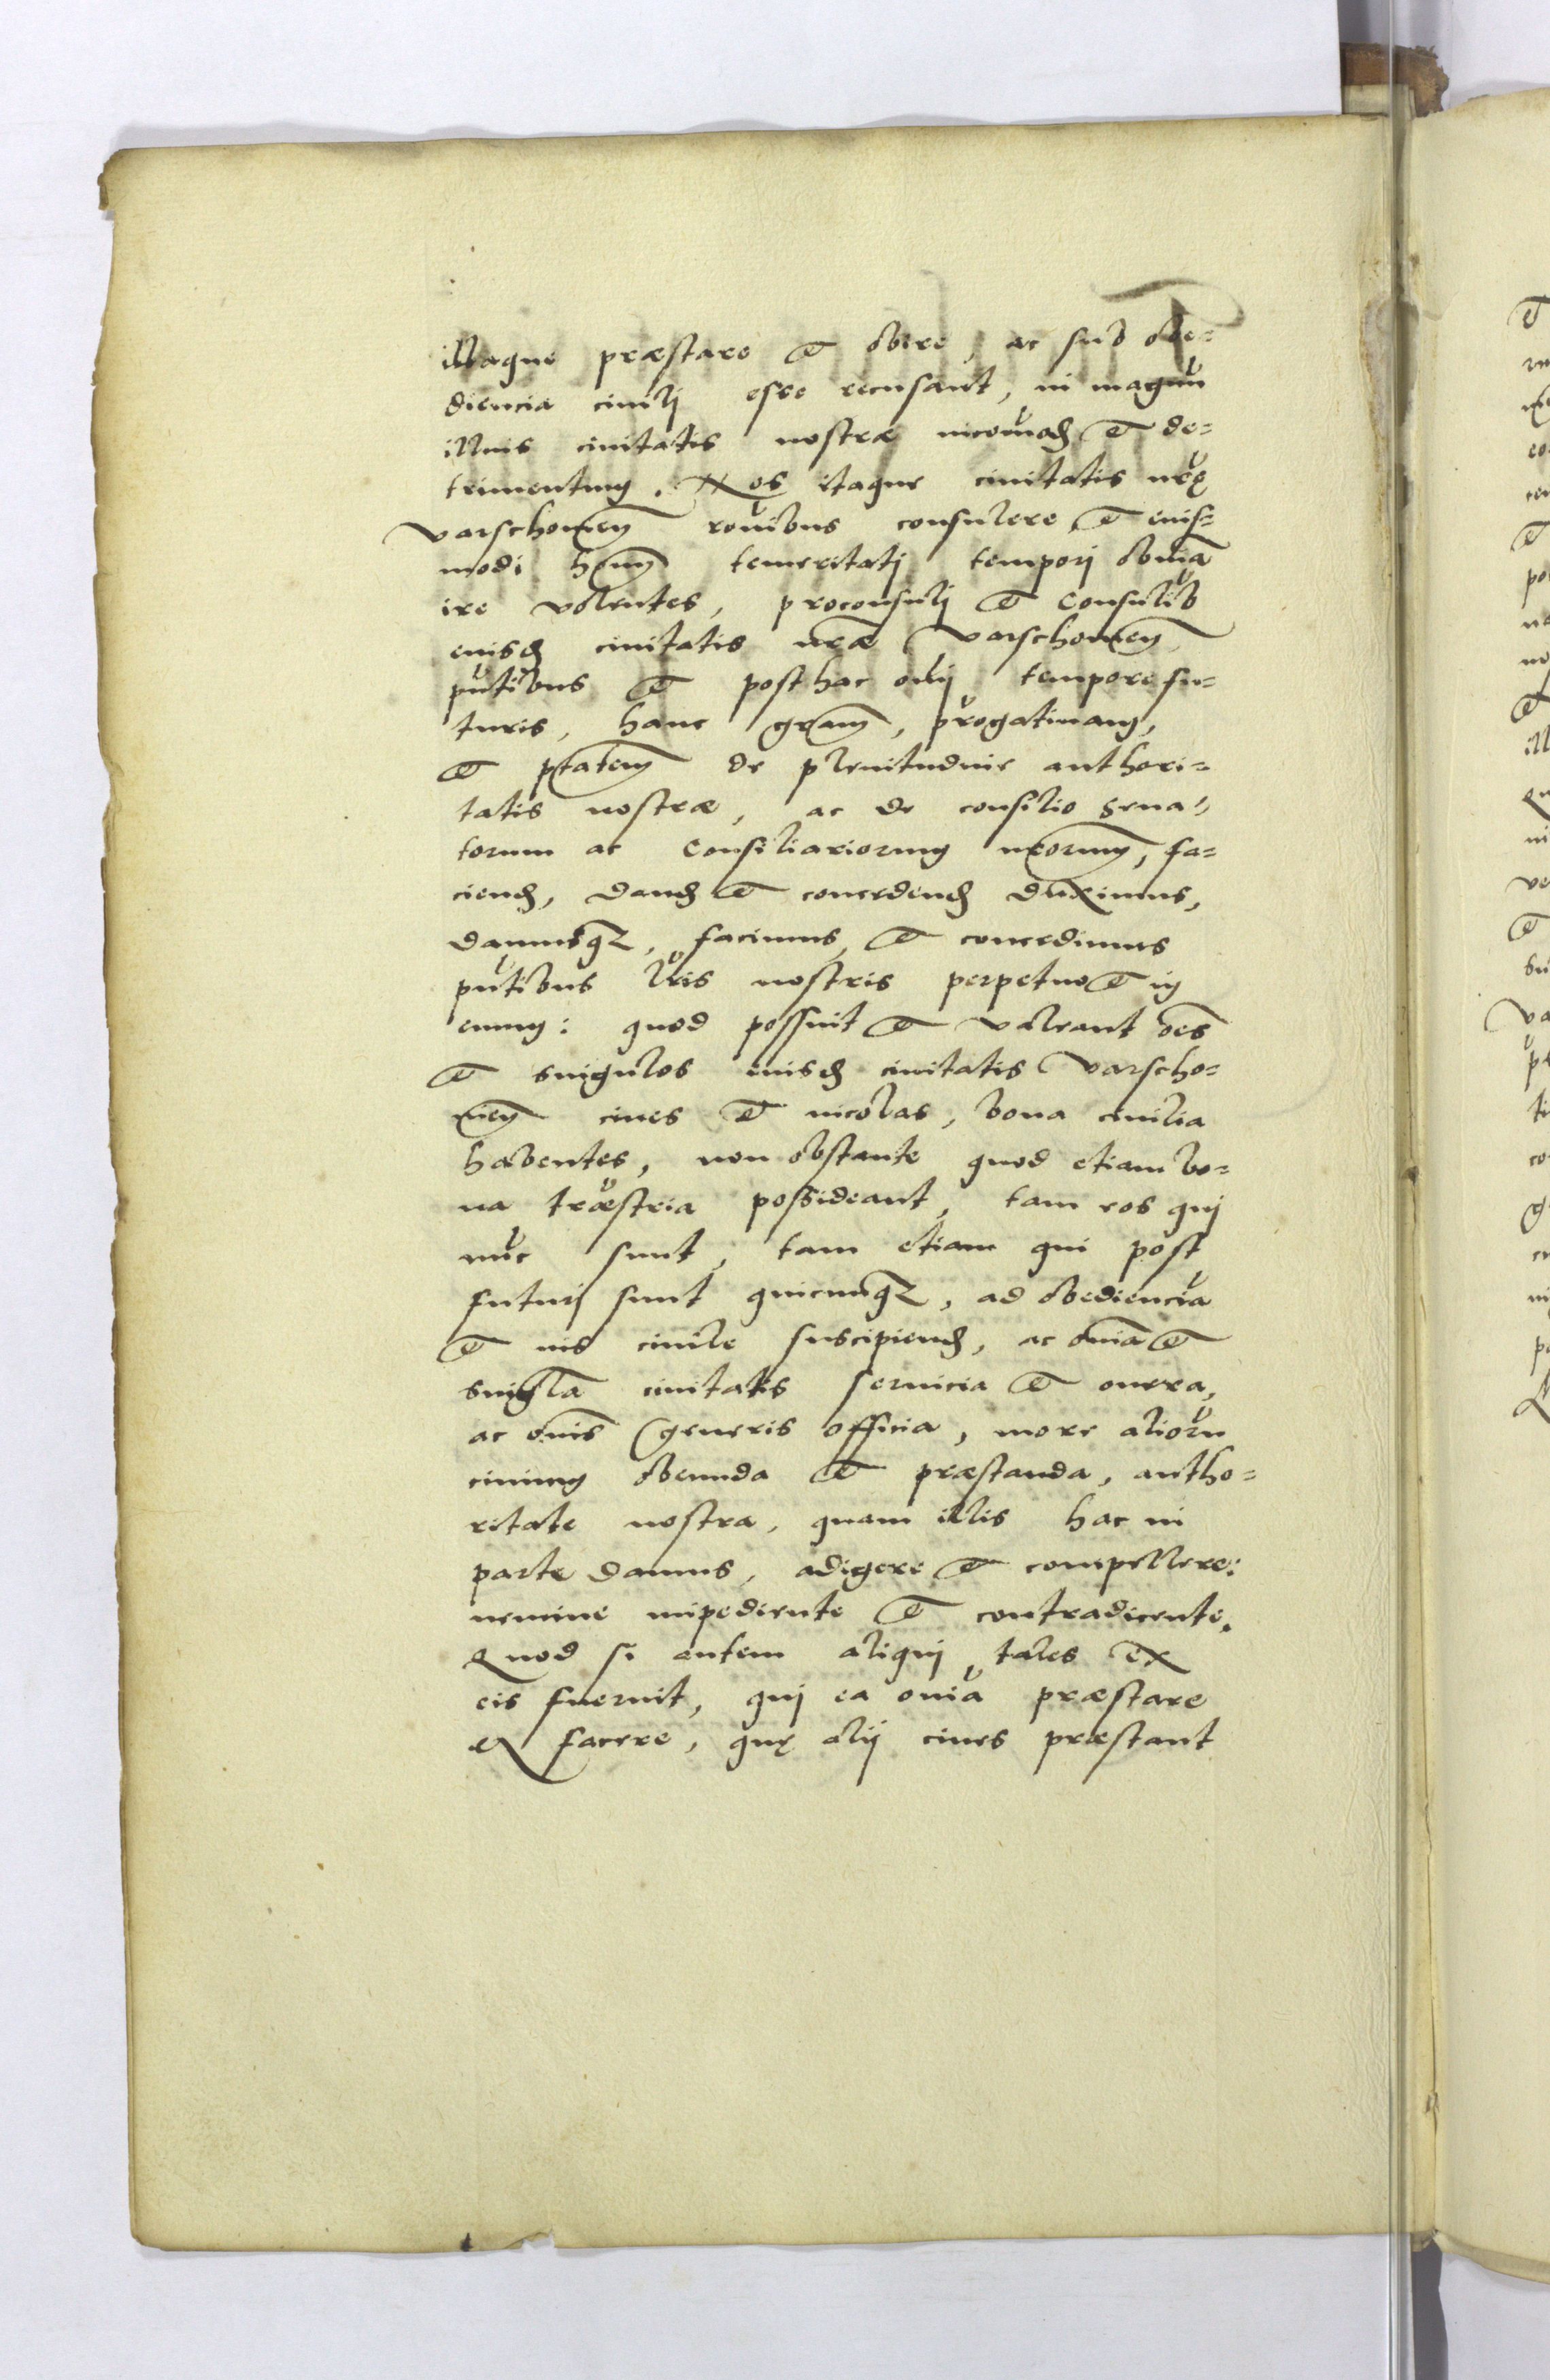 illaque præstare et obire, ac sub obe=
diencia civili esse recusant, in magnũ
illius civitatis nostræ incõmod et de=
trimentum. Nos itaque civitatis nrę
Varschovien rõnibus consulere et eius=
modi hõim temeritatj temporj obviã
ire volentes, proconsulj et Consulib
eiusd civitatis nræ Varschovien
pntibus et post hac oĩj tempore fu=
turis, hanc gram, prrogativam,
et ptatem de plenitudine authori=
tatis nostræ, ac de consilio Sena=
torum ac Consiliariorum nrorum, fa=
ciend, dand et concedend duximus,
damusq, facimus, et concedimus
pntibus lris nostris perpetuo et in
evum: quod possint et valeant oẽs
et singulos eiusd civitatis Varscho=
vien cives et incolas, bona civilia
habentes, non obstante quod etiam bo=
na træstria possideant, tam eos quj
nũc sunt, tam etiam qui post
futurj sunt quicunq, ad obedienciã
et ius civile suscipiend, ac oĩa et
singla civitatis servicia et onera,
ac oĩs generis officia, more aliorũ
civium obeunda et præstanda, autho=
ritate nostra, quam illis hac in
parte damus, adigere et compellere:
nemine impediente et contradicente.
Quod si autem aliquj tales ex
eis fuerint, quj ea oĩa præstare
et facere, quę alij cives præstant